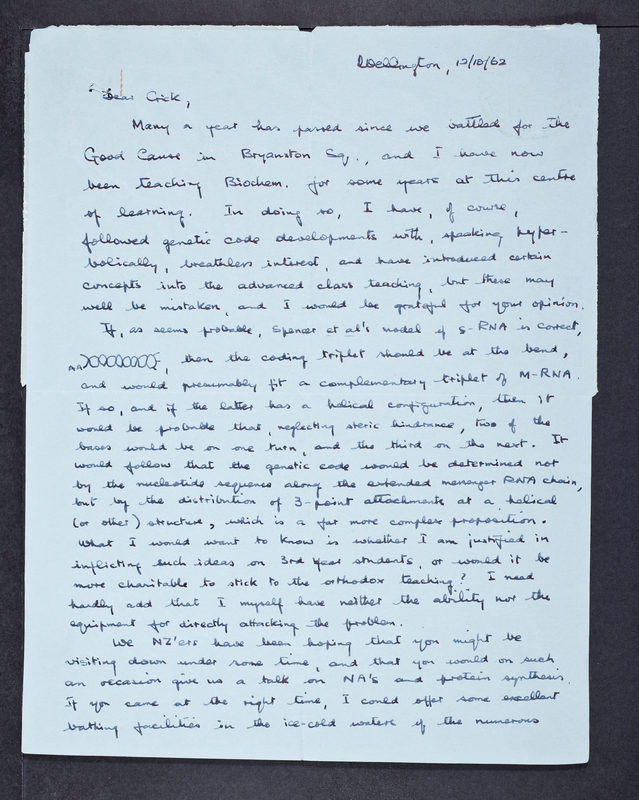 Wellington, 12/10/62
Dear Crick,
Many a year has passed since we battled for the
Good Cause in Bryanston Sq., and I have now
been teaching Biochem. for some years at this centre
of learning. In doing so, I have, of course,
followed genetic code developments with, speaking hyper-
bolically, breathless interest, and have introduced certain
concepts into the advanced class teaching, but these may
well be mistaken, and I would be grateful for your opinion.
If, as seems probable, Spencer et al's model of s-RNA is correct,
AA , then the coding triplet should be at the bend,
and would presumably fit a complementary triplet of M-RNA.
If so, and if the latter has a helical configuration, then it
would be probable that, neglecting steric hindrance, two of the
bases would be on one turn, and the third on the next. It
would follow that the genetic code would be determined not
by the nucleotide sequence along the extended messenger RNA chain,
but by the distribution of 3-point attachments at a helical
(or other) structure, which is a far more complex proposition.
What I would want to know is whether I am justified in
inflicting such ideas on 3rd year students, or would it be
more charitable to stick to the orthodox teaching? I need
hardly add that I myself have neither the ability nor the
equipment for directly attacking the problem.
We NZ'ers have been hoping that you might be
visiting down under some time, and that you would on such
an occasion give us a talk on NA's and protein synthesis.
If you came at the right time, I could offer some excellent
bathing facilities in the ice-cold waters of the numerous